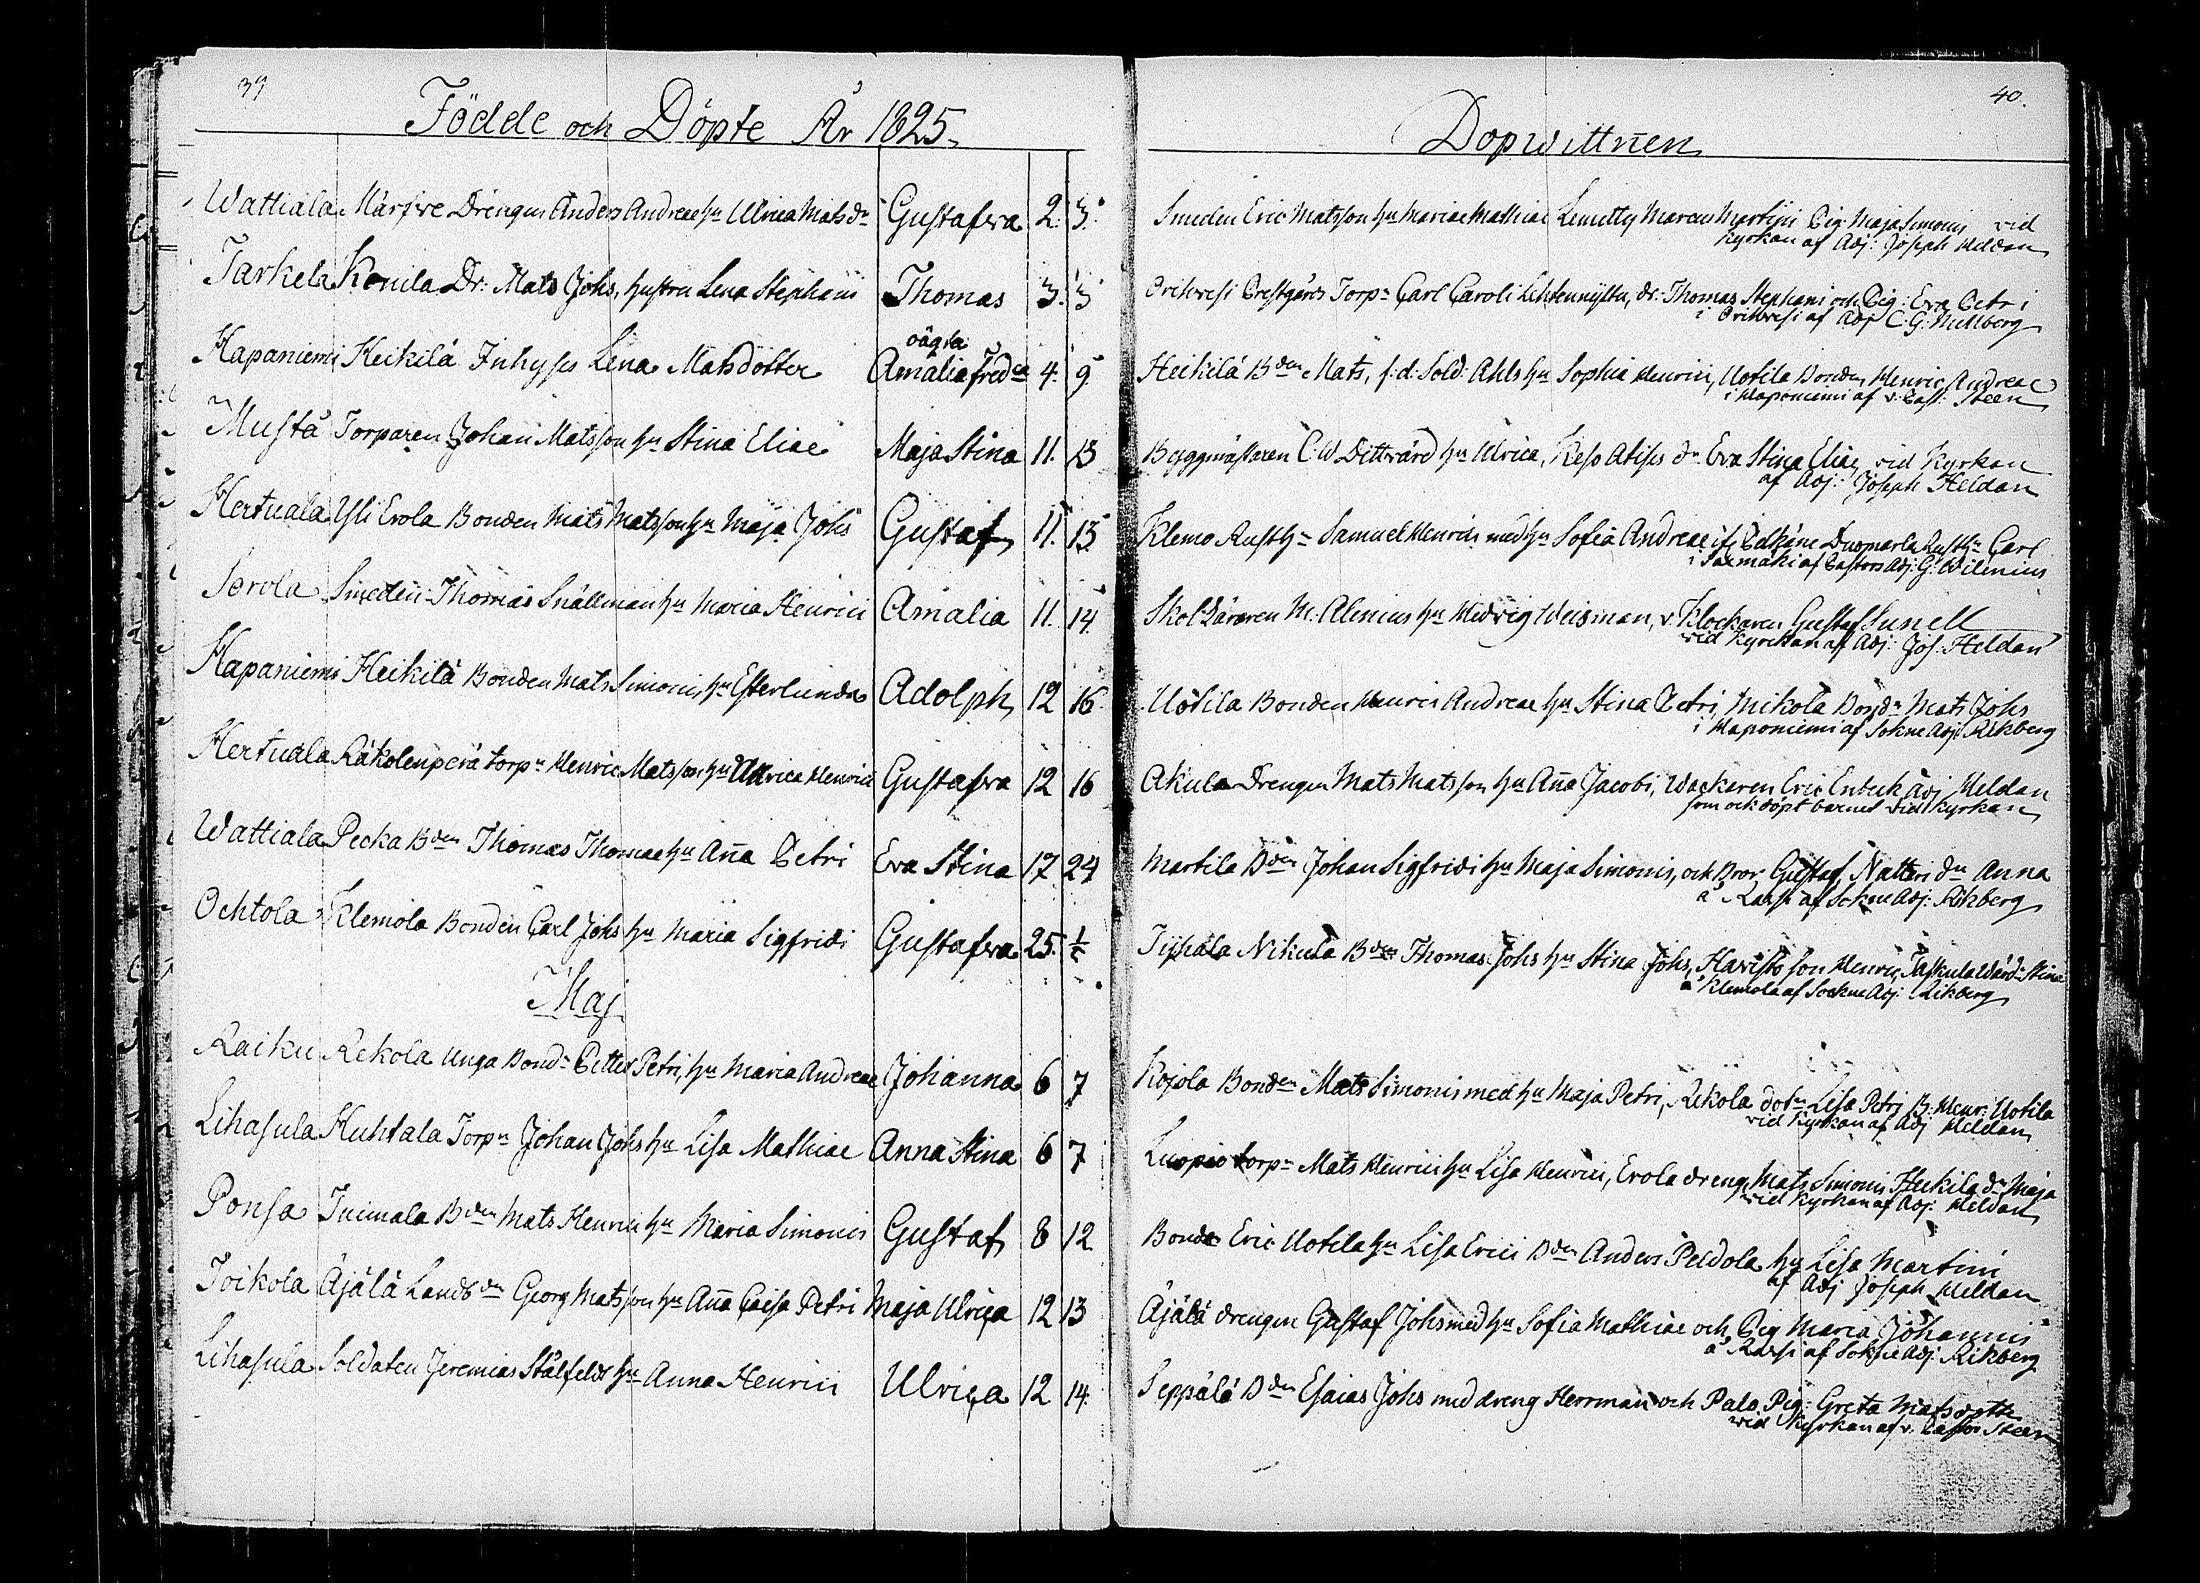 39
Födde och Döpte År 1825.
Wattiala Märfve Drengen Anders Andreae hu Ulrica Mats dr Gustafva 2. 3.
Tarkela Konila Dr: Mats Johs, hustru Lena Stephani Thomas 3. 3
oägta
Hapaniemi Heikilä Inhyses Lena Matsdotter Amalia Fredca 4. 9.
Musta Torparen Johan Matsson hu Stina Eliae Maja Stina 11. 13
Hertuala Yli Erola Bonden Mats Matsson hu Maja Johs Gustaf 11. 13.
Sorola Smeden Thomas Snällman hu Maria Henrici Amalia 11. 14.
Hapaniemi Heikilä Bonden Mats Simonis, hu Ester Adolph 12 16.
Hertuala Räkolenperä torpn Henric Matsson hu Ulrica Henrici Gustafva 12 16
Wattiala Pecka Bden Thomas Thomae hu Aña Petri Eva Stina 17 24
Ochtola Klemola Bonden Carl Johs hu Maria Sigfridi Gustafva 25. 1/5
Maj
Raiku Rekola Unga Bondn Petter Petri, hu Maria Andreae Johanna 6 7
Lihasula Huhtala Torpn Johan Johs hu Lisa Mathiae Anna Stina 6 7
Ponsa Tuimala Bden Mats Henrici hu Maria Simonis Gustaf 8 12
Toikola Äjälä Landbdn Georg Matsson hu Aña Caisa Petri Maja Ulrica 12 13
Lihasula Soldaten Jeremias Stålfelt hu Anna Henrici Ulrica 12 14.
40.
Dopwittnen
Smeden Eric Matsson hu Maria Mathiae Lemetty Marcus Martini Pig: Maja Simonis vid
kyrkan af Adj: Joseph Heldan
Orihvesi Prestgårds Torpn Carl Caroli, dr: Thomas Stephani och Pig: Eva Petri
i Orihvesi af Adj C: G:
Heikilä Bden Mats, f: d: Sold: Ahls hu Sophia Henrici, Uotila Bonden Henric Andreae
i Haponiemi af v: Past: Steen
Byggmästaren C W Dittvärd hu Ulrica, Keso dr Eva Stina Eliae vid Kyrkan
af Adj: Joseph Heldan
Klemo Rusth: Samuel Henrici med hu Sofia Andreae if. Pelkäne Rusthn Carl
i Saxmäki af Pastors Adj: G: Wilenius
Skol Läraren M: Alenius hu Hedvig Weisman, v. Klockaren Gustaf Sunell
vid Kyrckan af Adj: Jos: Heldan
Uotila Bonden Henric Andreae hu Stina Petri, Mikola Bondn Mats Johs
i Haponiemi af Sokne Adj: Rikberg
Akula Drengen Mats Matsson hu Aña Jacobi, Wackaren Eric Enbuk Adj Heldan
som ock döpt barnet vid kyrkan
Martila Bden Johan Sigfridi hu Maja Simonis, och Bror Gustaf, Natteri dr Anna
å af Sokne Adj: Rikberg
Nikula Bden Thomas Johs hu Stina Johs, Haristo son Henric, Stina
å Klemola af Sockne Adj: Rikberg
Kojola Bonden Mats Simonis med hu Maja Petri, Rekola dotn Lisa Petri B: Henr: Uotila
vid Kyrkan af Adj Heldan
Luopio torpn Mats Henrici hu Lisa Henrici, Erola dreng Mats Simonis Heikilä dr Maja
vid kyrkan af Adj: Heldan
Bonden Eric Uotila hu Lisa Erici Bden Anders Peldola hu Lisa Martini
af Adj Joseph Heldan
Äjälä drengen Gustaf Johs med hu Sofia Mathiae och Pig Maria Johannis
å af Sokne Adj: Rikberg
Seppälä Bden Esaias Johs med dreng Herrman och Palo Pig: Greta Matsdotter
vid Kyrkan af v. Pastor Steen